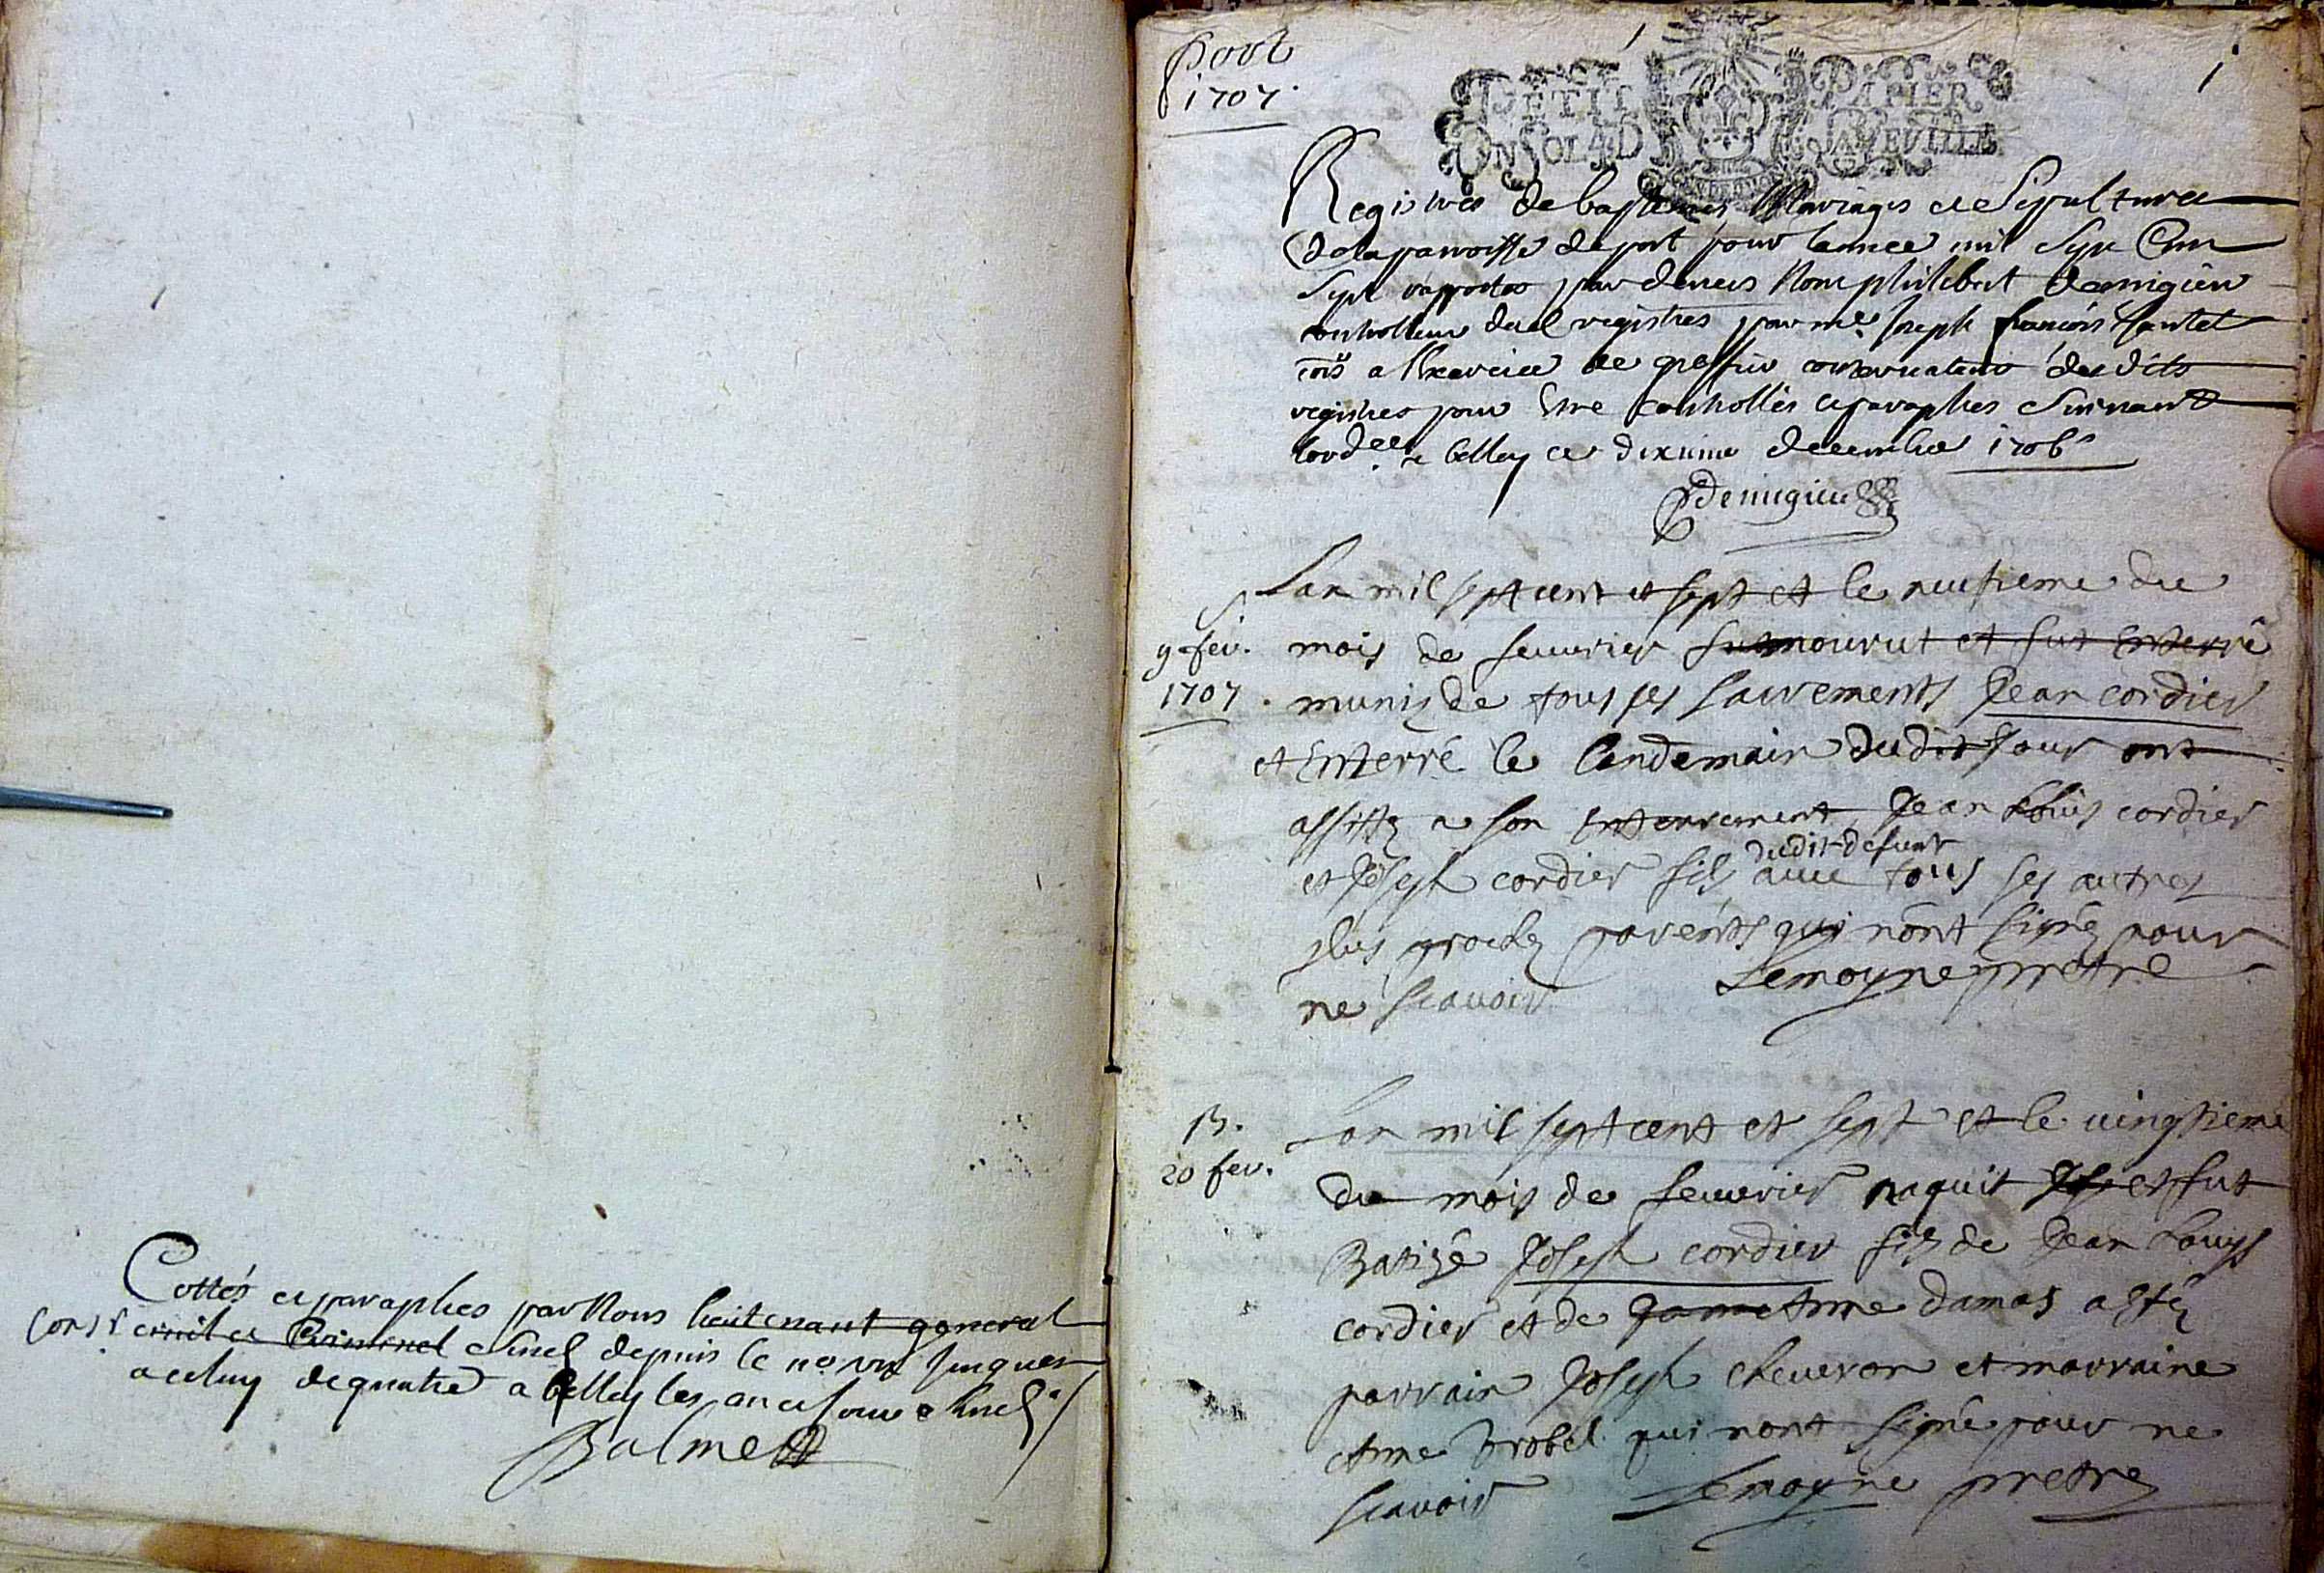 Cottés et paraphes par Nous lieutenant general
Cons.r civil et Criminel depuis le no un Jusques
a celuy de quatre a belley les an et Jour
Balme
Port
1707.
1
PETIT PAPIER
UN SOL 4 D LA FEUILLE
Registres de baptemes Mariages et Sepultures
de la parroisse de port pour lannee mil Sept Cent
Sept rapportes par devers Nous philibert demigieu
controlleur desd registres par me Joseph francois Jantet
a lexercice de greffier conservateur desdits
registres pour Etre controllés et paraphes Suivant
a belley ce dixieme decembre 1706
Demigieu
S
9 fev.
1707.
Lan mil sept cent et sept et le neufieme du
mois de feuvrier mourut et fut Enterré
munis de tous ses sacrements Jean cordier
et Enterré le lendemain dudit Jour ont
assisté a son Enterrement Jean Louis cordier
et Joseph cordier fils dudit defunt avec tous ses autres
plus proches parents qui nont signé pour
ne scavoir Lemoyne pretre
B.
20 fev.
Lan mil sept cent et sept et le vingtieme
du mois de feuvrier naquit et fut
Batisé Joseph cordier fils de Jean Louys
cordier et de Anne damas a esté
parrain Joseph cheuvron et marraine
Anne Brobel qui nont signé pour ne
scavoir Lemoyne pretre